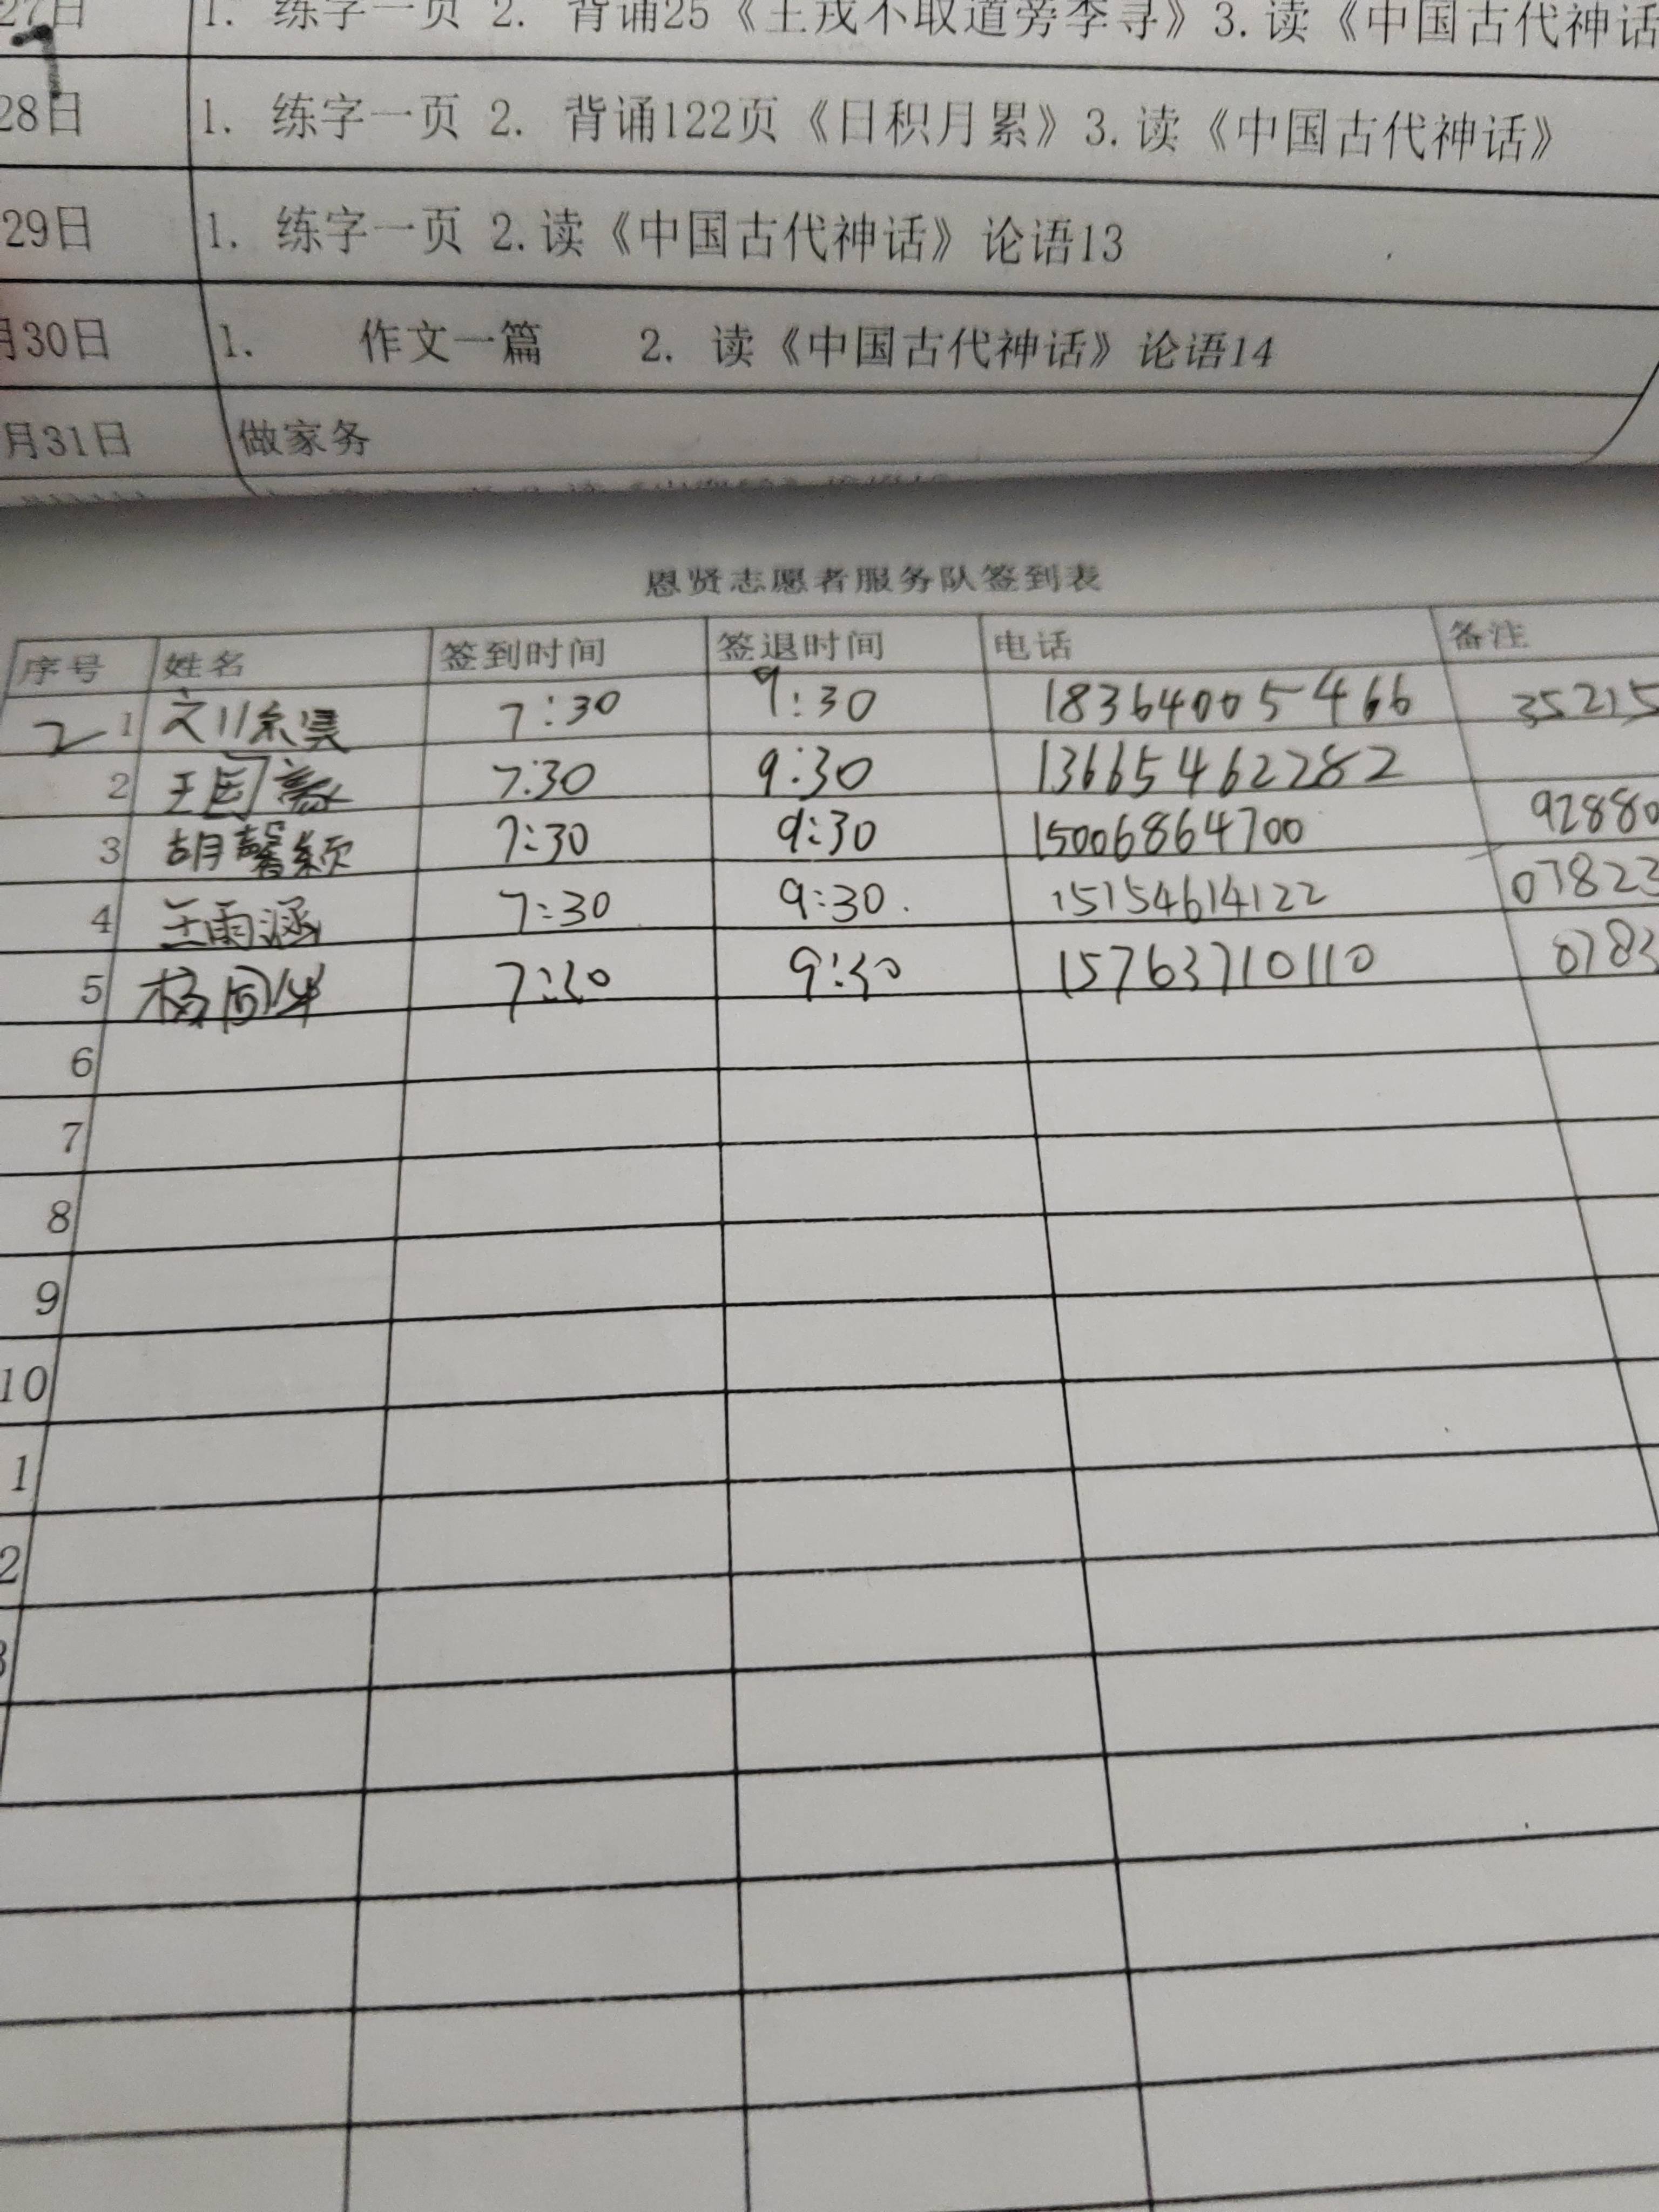 27日 1. 练字一页 2. 背诵25《王戎不取道旁李寻》3.读《中国古代神话
28日 1. 练字一页 2. 背诵122页《日积月累》3.读《中国古代神话》
29日 1. 练字一页 2.读《中国古代神话》论语13
月30日 1. 作文一篇 2. 读《中国古代神话》论语14
月31日 做家务
恩贤志愿者服务队签到表
序号 姓名 签到时间 签退时间 电话 备注
2 1 7:30 9:30 18364005466 35215
2 王国豪 7:30 9:30 13665462282
3 胡馨颖 7:30 9:30 15006864700 92880
4 王雨涵 7:30 9:30 15154614122 07823
5 杨同华 7:30 9:30 15763710110 0783
6
7
8
9
10
1
2
3